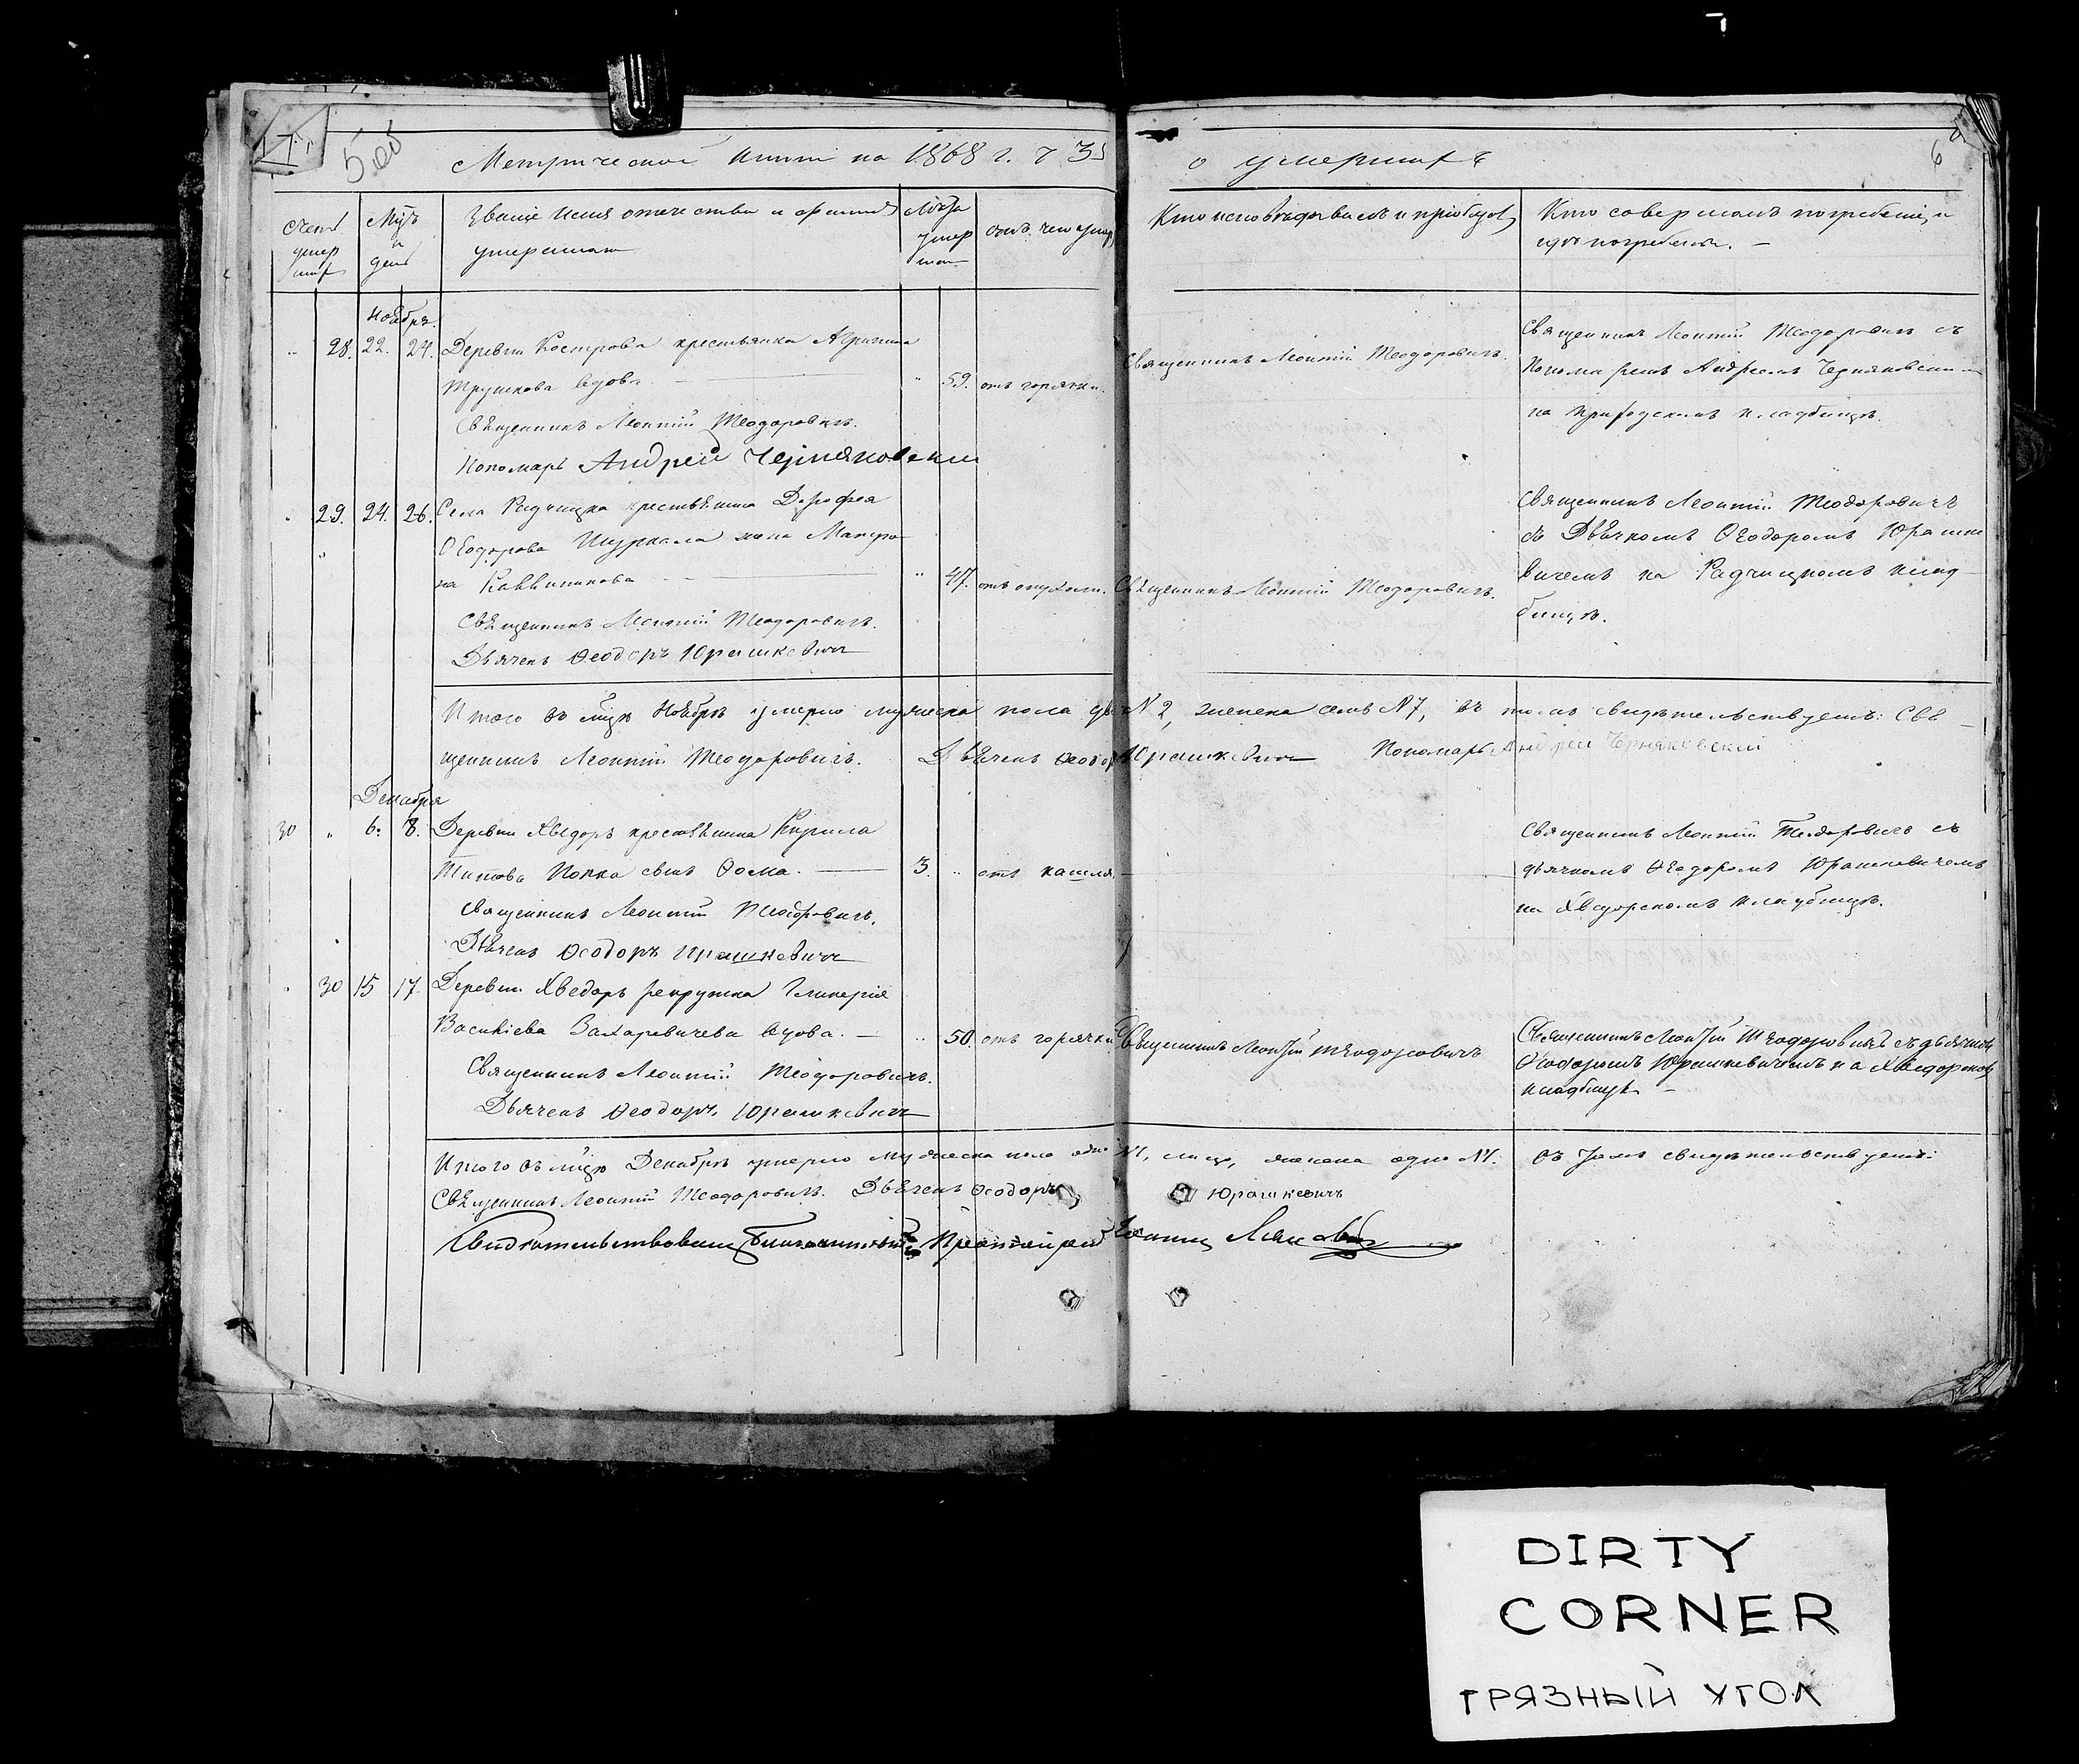 5об
Метрической книги на 1868 г. ч 3я
о умершихъ
6
Счетъ умершихъ
Мцъ и день
Званіе имя отчество и фамилія умершаго
Лѣта умершаго
отъ чего умеръ
Кто исповѣдывалъ и пріобщалъ
Кто совершалъ погребеніе и
гдѣ погребены. —
Ноября.
" 28. 22. 24. Деревни Кострова крестьянка Агрипина
Трушкова вдова. — " 59. отъ горячки.
Священникъ Леонтій Теодоровичъ.
Пономарь Андрей Черняковскій
Священникъ Леонтій Теодоровичъ.
Священникъ Леонтій Теодоровичъ съ
Пономаремъ Андреемъ Черняковскимъ
на кладбищѣ.
" 29. 24. 26. Села Радчицка крестьянина Дорофея
Ѳеодорова жена
на — " 47. отъ опухоли.
Священникъ Леонтій Теодоровичъ.
Дьячекъ Ѳеодоръ Юрашкевичъ
Священникъ Леонтій Теодоровичъ.
Священникъ Леонтій Теодоровичъ
съ Дьячкомъ Ѳеодоромъ Юрашке
вичемъ на Радчицкомъ клад
бищѣ.
Итого въ мцѣ Ноябрѣ умерло мужеска пола два N 2, женска семь N 7, въ томъ свидѣтельствуемъ: Свя
щенникъ Леонтій Теодоровичъ. Дьячекъ Ѳеодоръ Юрашкевичъ Пономарь Андрей Черняковскій
Декабря
30 " 6. 8. Деревни Хведоръ крестьянина Кирила
Титова Попка сынъ Ѳома. — 3. " отъ кашля. —
Священникъ Леонтій Теодоровичъ.
Дьячекъ Ѳеодоръ Юрашкевичъ
Священникъ Леонтій Теодоровичъ съ
дьячкомъ Ѳеодоромъ Юрашкевичемъ
на Хведорскомъ кладбищѣ.
" 30 15 17. Деревни Хведоръ рекрутка Гликерія
Василіева Захаревичева вдова. — " 50. отъ горячки
Священникъ Леонтій Теодоровичъ.
Дьячекъ Ѳеодоръ Юрашкевичъ
Священникъ Леонтій Теодоровичъ
Священникъ Леонтій Теодоровичъ съ дьячкомъ
Ѳеодоромъ Юрашкевичемъ на Хведорскомъ
кладбищѣ —
Итого въ мцѣ Декабрѣ умерло мужеска пола одно N 1. лице, женска одно N 1. въ томъ свидѣтельствуемъ:
Священникъ Леонтій Теодоровичъ. Дьячекъ Ѳеодоръ Юрашкевичъ
Свидѣтельствовалъ Благочинный Протоіерей Іоаннъ
DIRTY
CORNER
ГРЯЗНЫЙ УГОЛ